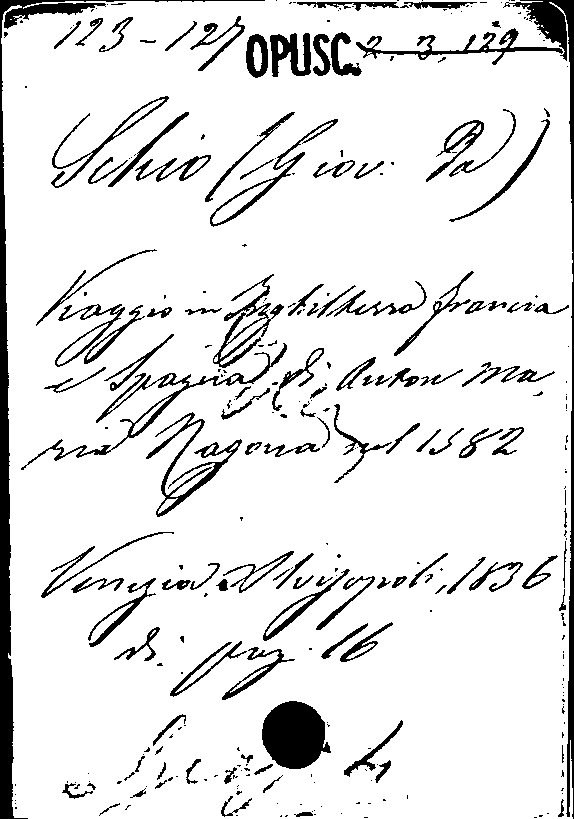 123-127 OPUSC. 2. 3. 129
Schio (Giov: Ba)
Viaggio in Inghilterra francia
e Spagna di Anton Ma,
ria Ragona nel 1582
Venezia. Alvisopoli, 1836
di pag. 16